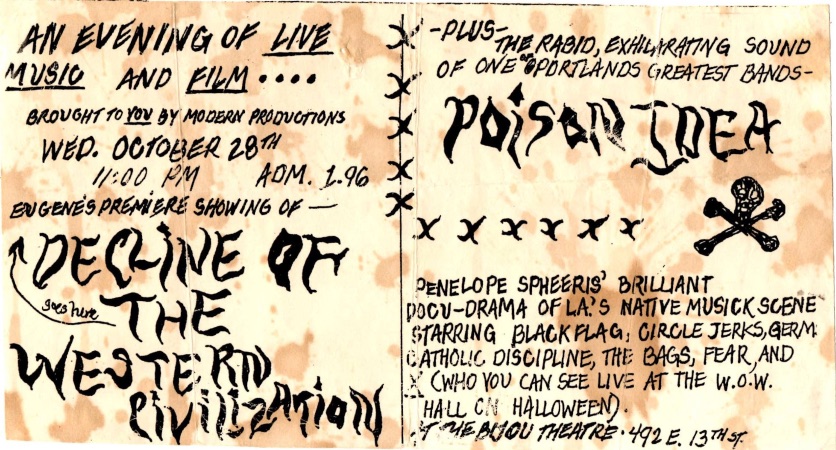 AN EVENING OF LIVE
MUSIC AND FILM ....
BROUGHT TO YOU BY MODERN PRODUCTIONS
WED. OCTOBER 28TH
11:00 PM ADM. 1.96
EUGENE'S PREMIERE SHOWING OF —
DECLINE OF
goes here
THE
WESTERN
CIVILIZATION
-PLUS-
THE RABID, EXHILARATING SOUND
OF ONE OF PORTLANDS GREATEST BANDS-
POISON IDEA
X X X X X X
PENELOPE SPHEERIS' BRILLIANT
DOCU-DRAMA OF L.A.'S NATIVE MUSICK SCENE
STARRING BLACK FLAG, CIRCLE JERKS, GERM
CATHOLIC DISCIPLINE, THE BAGS, FEAR, AND
X (WHO YOU CAN SEE LIVE AT THE W.O.W.
HALL ON HALLOWEEN).
AT THE BIJOU THEATRE · 492 E. 13TH ST.